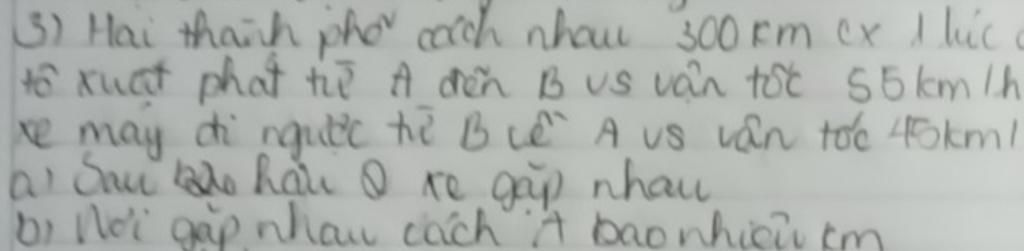 3) Hai thành phố cách nhau 300 km cx 1 lúc
tô xuất phát từ A đến B vs vận tốc 55 km/h
xe máy đi ngược từ B về A vs vận tốc 45km/
a) Sau bao hâu 2 xe gặp nhau
b) Nơi gặp nhau cách A bao nhiêu km